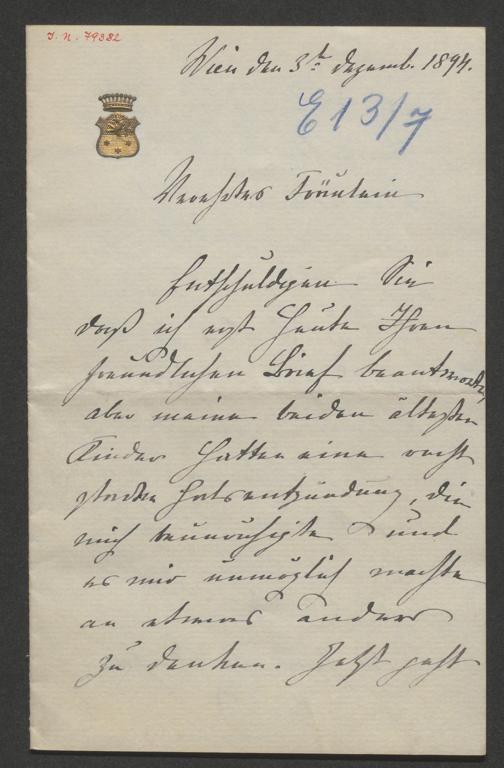 J. N. 79382
Wien den 3t Dezemb. 1894.
E 13/7
Verehrtes Fräulein
Entschuldigen Sie
daß ich erst heute Ihren
freundlichen Brief beantworte,
aber meine beiden ältesten
Kinder hatten eine recht
starke Halsentzündung, die
mich beunruhigte und
es mir unmöglich machte
an etwas anders
zu denken. Jetzt geht